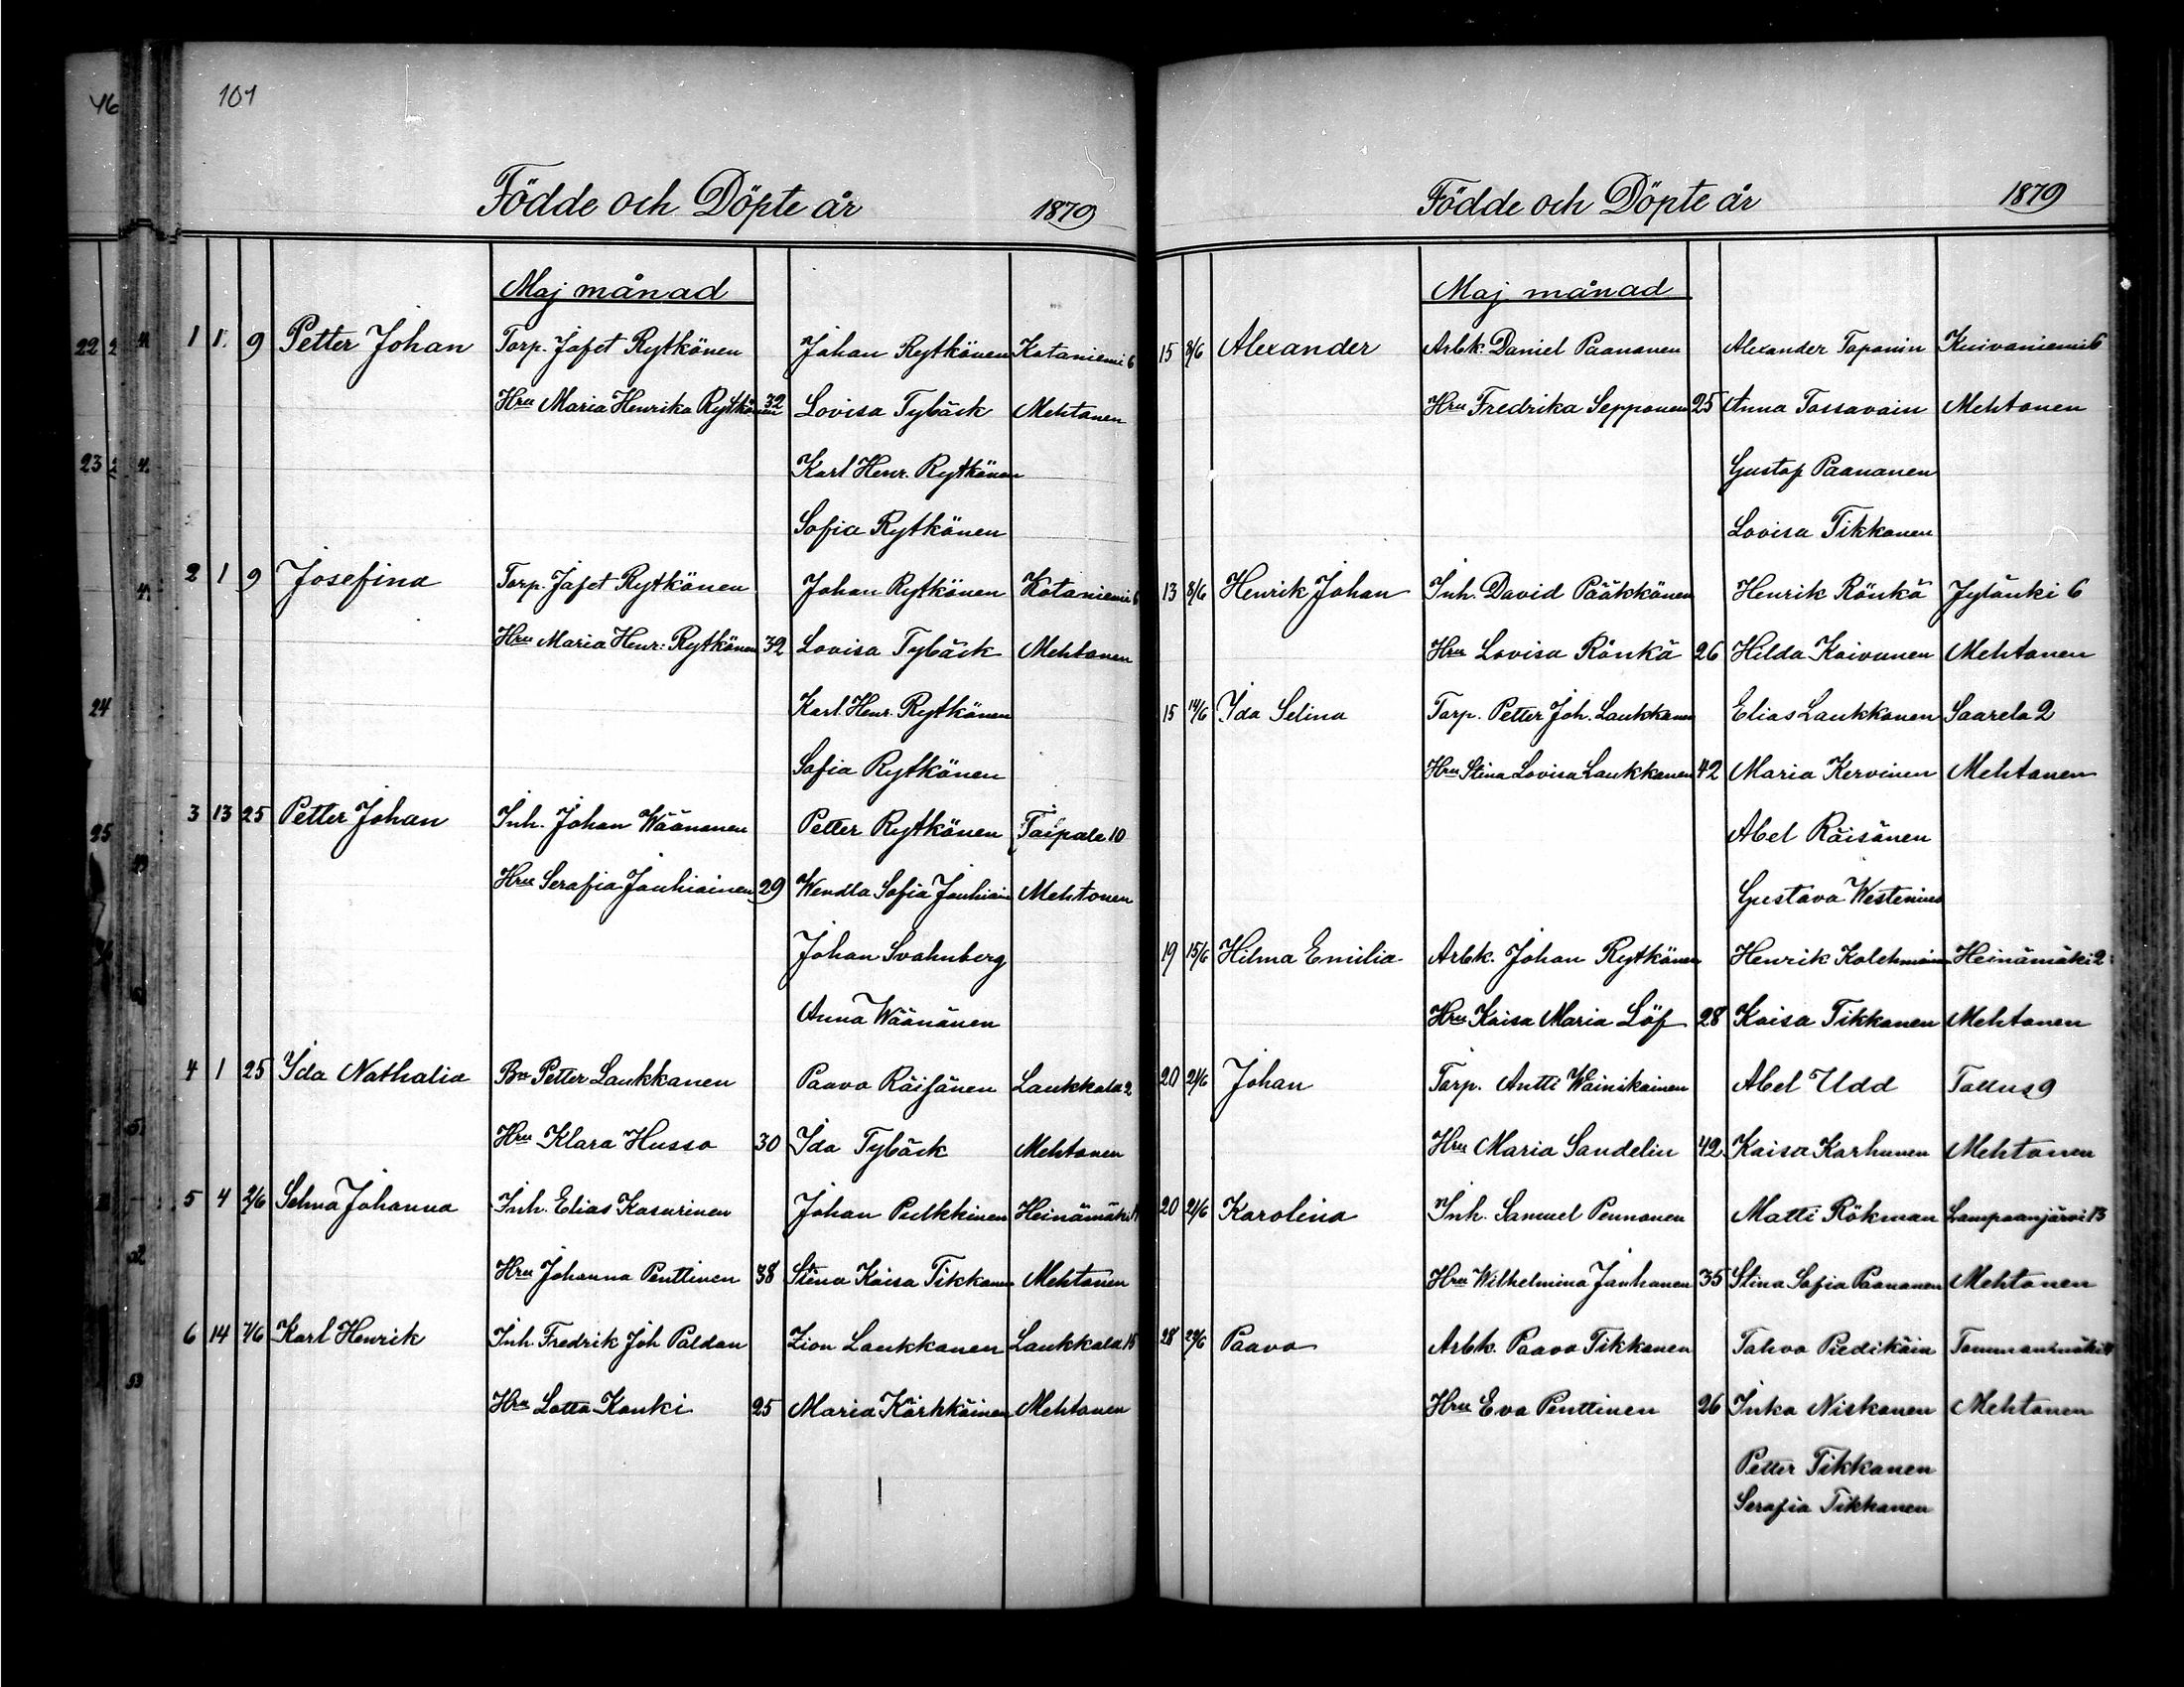 46
101
Födde och Döpte år 1879
Maj månad
1 1 9 Petter Johan Torp. Jafet Rytkönen Johan Rytkönen Kotaniemi 6
Hru Maria Henrika Rytkönen 32 Lovisa Tybäck Mehtonen
Karl Henr. Rytkönen
Sofia Rytkönen
2 1 9 Josefina Torp. Jafet Rytkönen Johan Rytkönen Kotaniemi 6
Hru Maria Henr: Rytkönen 32 Lovisa Tybäck Mehtonen
Karl. Henr. Rytkönen
Sofia Rytkönen
3 13 25 Petter Johan Inh. Johan Wäänänen Petter Rytkönen Taipale 10
Hru Serafia Jauhiainen 29 Wendla Sofia Jauhiain Mehtonen
Johan Svahnberg
Anna Wäänänen
4 1 25 Ida Nathalia Bo Petter Laukkanen Paavo Räisänen Laukkala 2
Hru Klara Husso 30 Ida Tybäck Mehtonen
5 4 2/6 Selma Johanna Inh. Elias Kasurinen Johan Pulkkinen Heinämäki
Hru Johanna Penttinen 38 Stina Kaisa Tikkanen Mehtonen
6 14 7/6 Karl Henrik Inh. Fredrik Joh Paldan Zion Laukkanen Laukkala 15
Hru Lotta Konki 25 Maria Kärkkäinen Mehtonen
22
23
24
25
Födde och Döpte år 1879
Maj månad
15 8/6 Alexander Arbk. Daniel Paananen Alexander Toponin Kuivaniemi 6
Hru Fredrika Sepponen 25 Anna Tossavain Mehtonen
Gustaf Paananen
Lovisa Tikkanen
13 8/6 Henrik Johan Inh. David Pääkkönen Henrik Rönkä Jylänki 6
Hru Lovisa Rönkä 26 Hilda Koivunen Mehtonen
15 14/6 Ida Selina Torp. Petter Joh. Laukkanen Elias Laukkanen Saarela 2
Hru Stina Lovisa Laukkanen 42 Maria Kervinen Mehtonen
Abel Räisänen
Gustava Westenius
19 15/6 Hilma Emilia Arbk. Johan Rytkönen Henrik Kolehmain Heinämäki 2
Hru Kaisa Maria Löf 28 Kaisa Tikkanen Mehtonen
20 21/6 Johan Torp. Antti Wainikainen Abel Udd Tallus 9
Hru Maria Sandelin 42 Kaisa Karhunen Mehtonen
20 21/6 Karolina Inh. Samuel Pennanen Matti Rökman Lampaanjärvi 13
Hru Wilhelmina Janhunen 35 Stina Sofia Paananen Mehtonen
28 29/6 Paavo Arbk. Paavo Tikkanen Tahvo Piedikäin Tommanmäki
Hru Eva Penttinen 26 Inka Niskanen Mehtonen
Petter Tikkanen
Serafia Tikkanen